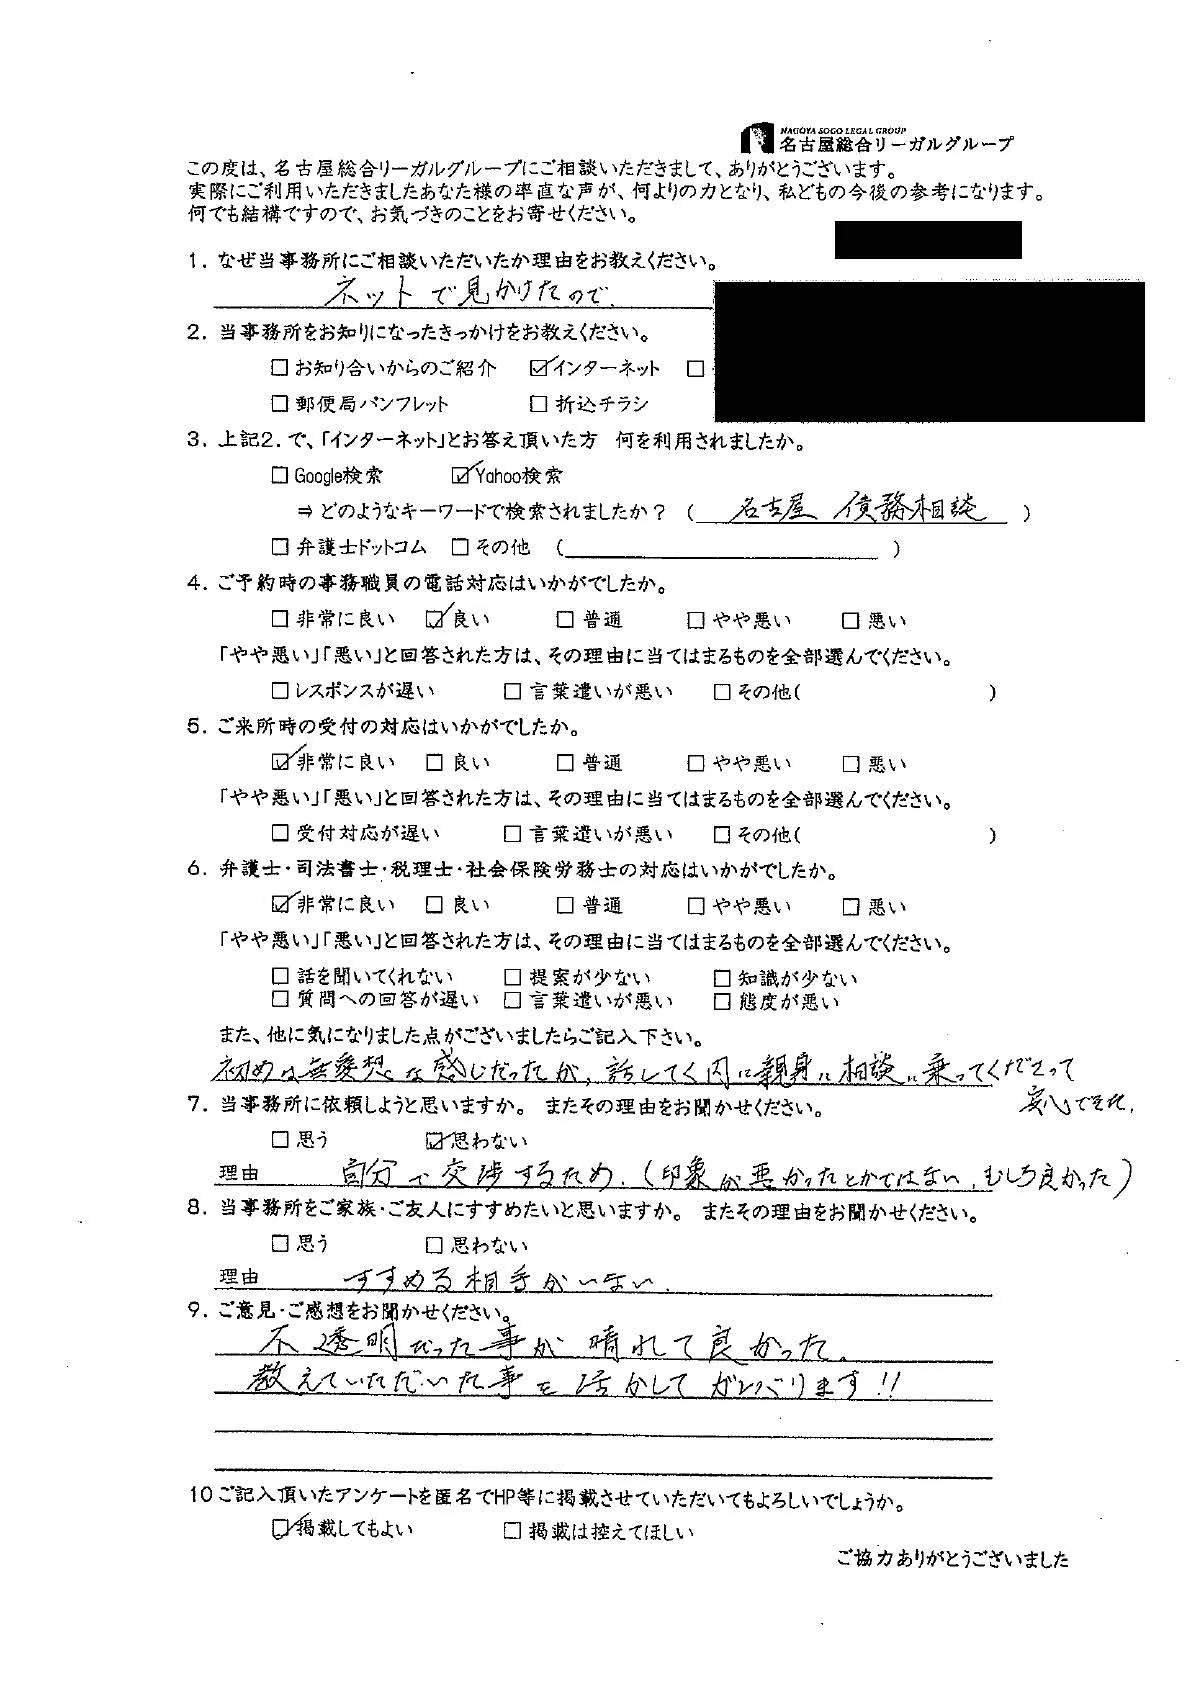 NAGOYA SOGO LEGAL GROUP
名古屋総合リーガルグループ
この度は、名古屋総合リーガルグループにご相談いただきまして、ありがとうございます。
実際にご利用いただきましたあなた様の率直な声が、何よりの力となり、私どもの今後の参考になります。
何でも結構ですので、お気づきのことをお寄せください。
1. なぜ当事務所にご相談いただいたか理由をお教えください。
ネットで見かけたので.
2. 当事務所をお知りになったきっかけをお教えください。
□ お知り合いからのご紹介 ☑インターネット □
□ 郵便局パンフレット □ 折込チラシ
3. 上記2.で、「インターネット」とお答え頂いた方 何を利用されましたか。
□ Google検索 ☑Yahoo検索
⇒ どのようなキーワードで検索されましたか？ ( 名古屋 債務相談 )
□ 弁護士ドットコム □ その他 ( )
4. ご予約時の事務職員の電話対応はいかがでしたか。
□ 非常に良い ☑良い □ 普通 □ やや悪い □ 悪い
「やや悪い」「悪い」と回答された方は、その理由に当てはまるものを全部選んでください。
□ レスポンスが遅い □ 言葉遣いが悪い □ その他( )
5. ご来所時の受付の対応はいかがでしたか。
☑非常に良い □ 良い □ 普通 □ やや悪い □ 悪い
「やや悪い」「悪い」と回答された方は、その理由に当てはまるものを全部選んでください。
□ 受付対応が遅い □ 言葉遣いが悪い □ その他( )
6. 弁護士・司法書士・税理士・社会保険労務士の対応はいかがでしたか。
☑非常に良い □ 良い □ 普通 □ やや悪い □ 悪い
「やや悪い」「悪い」と回答された方は、その理由に当てはまるものを全部選んでください。
□ 話を聞いてくれない □ 提案が少ない □ 知識が少ない
□ 質問への回答が遅い □ 言葉遣いが悪い □ 態度が悪い
また、他に気になりました点がございましたらご記入下さい。
初めは無愛想な感じだったが, 話してく内に親身に相談に乗ってくださって
安心できた.
7. 当事務所に依頼しようと思いますか。 またその理由をお聞かせください。
□ 思う ☑思わない
理由 自分で交渉するため. (印象が悪かったとかではない, むしろ良かった)
8. 当事務所をご家族・ご友人にすすめたいと思いますか。 またその理由をお聞かせください。
□ 思う □ 思わない
理由 すすめる相手がいない.
9. ご意見・ご感想をお聞かせください。
不透明だった事が晴れて良かった.
教えていただいた事を活かしてがんばります!!
10 ご記入頂いたアンケートを匿名でHP等に掲載させていただいてもよろしいでしょうか。
☑掲載してもよい □ 掲載は控えてほしい
ご協力ありがとうございました